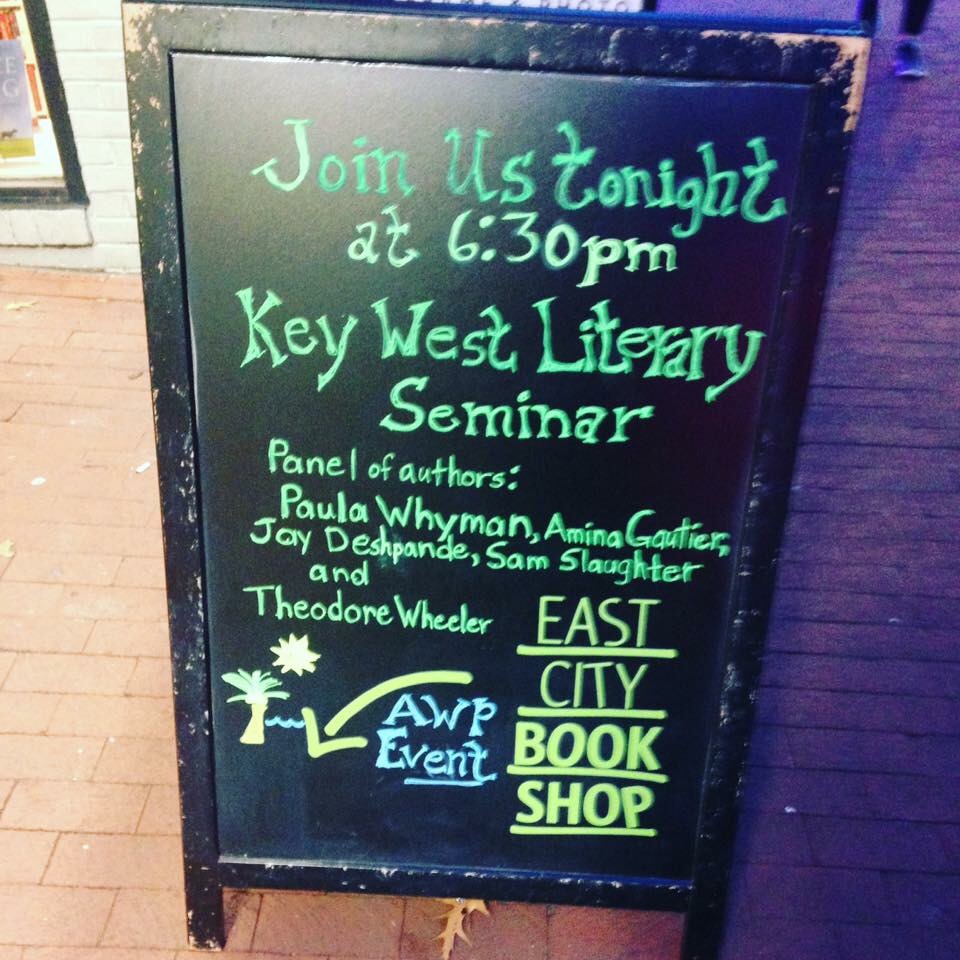 Join Us tonight
at 6:30pm
Key West Literary
Seminar
Panel of authors:
Paula Whyman, Amina Gautier,
Jay Deshpande, Sam Slaughter
and
Theodore Wheeler
EAST
CITY
BOOK
SHOP
AWP
Event